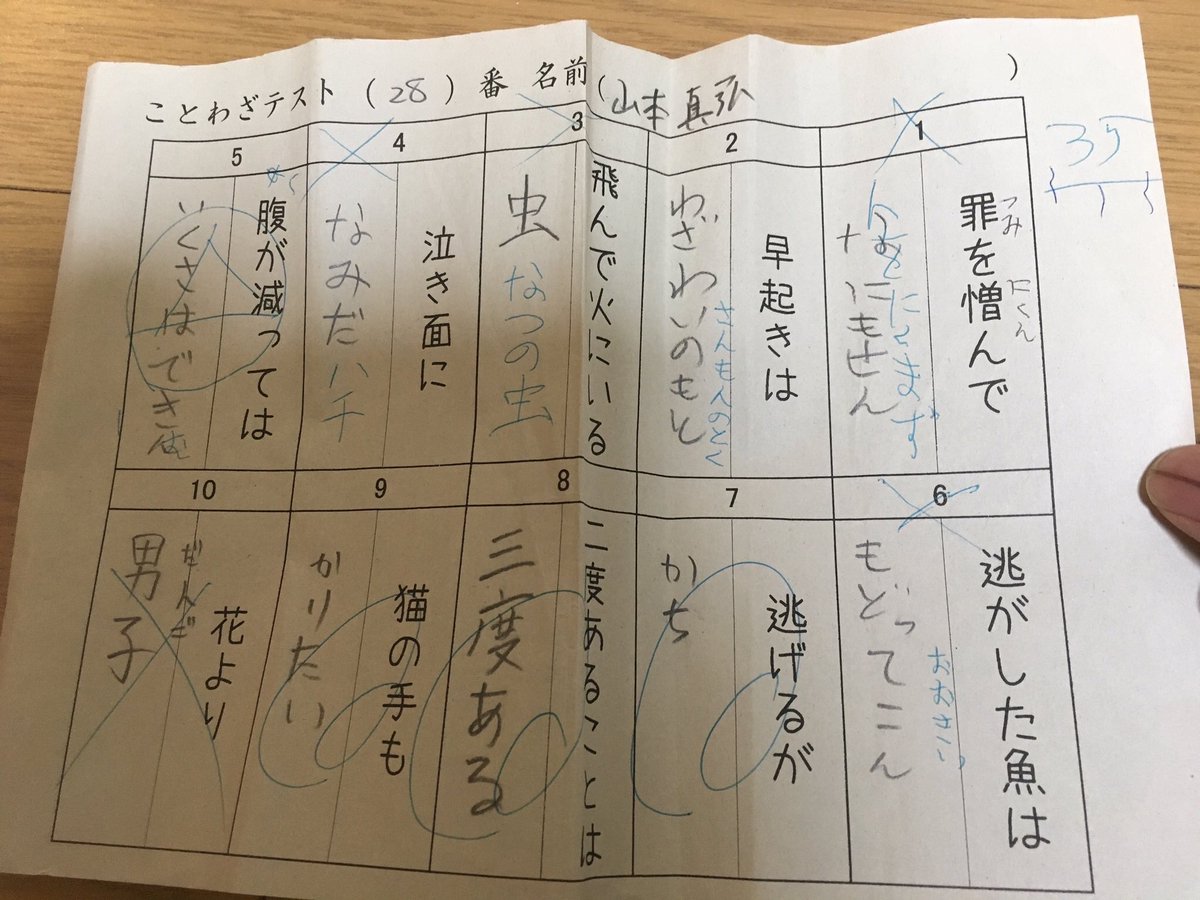 ことわざテスト (28) 番 名前 (山本 真弘 )
35
1
罪を憎んで
つみ にくん
ひとにくまず
なにもせん
2
早起きは
さんもんのとく
わざわいのもと
3
飛んで火にいる
虫 なつの虫
4
泣き面に
なみだハチ
5
腹が減っては
いくさはできぬ
6
逃がした魚は
おおきい
もどってこん
7
逃げるが
かち
8
二度あることは
三度ある
9
猫の手も
かりたい
10
花より
だんご
男子